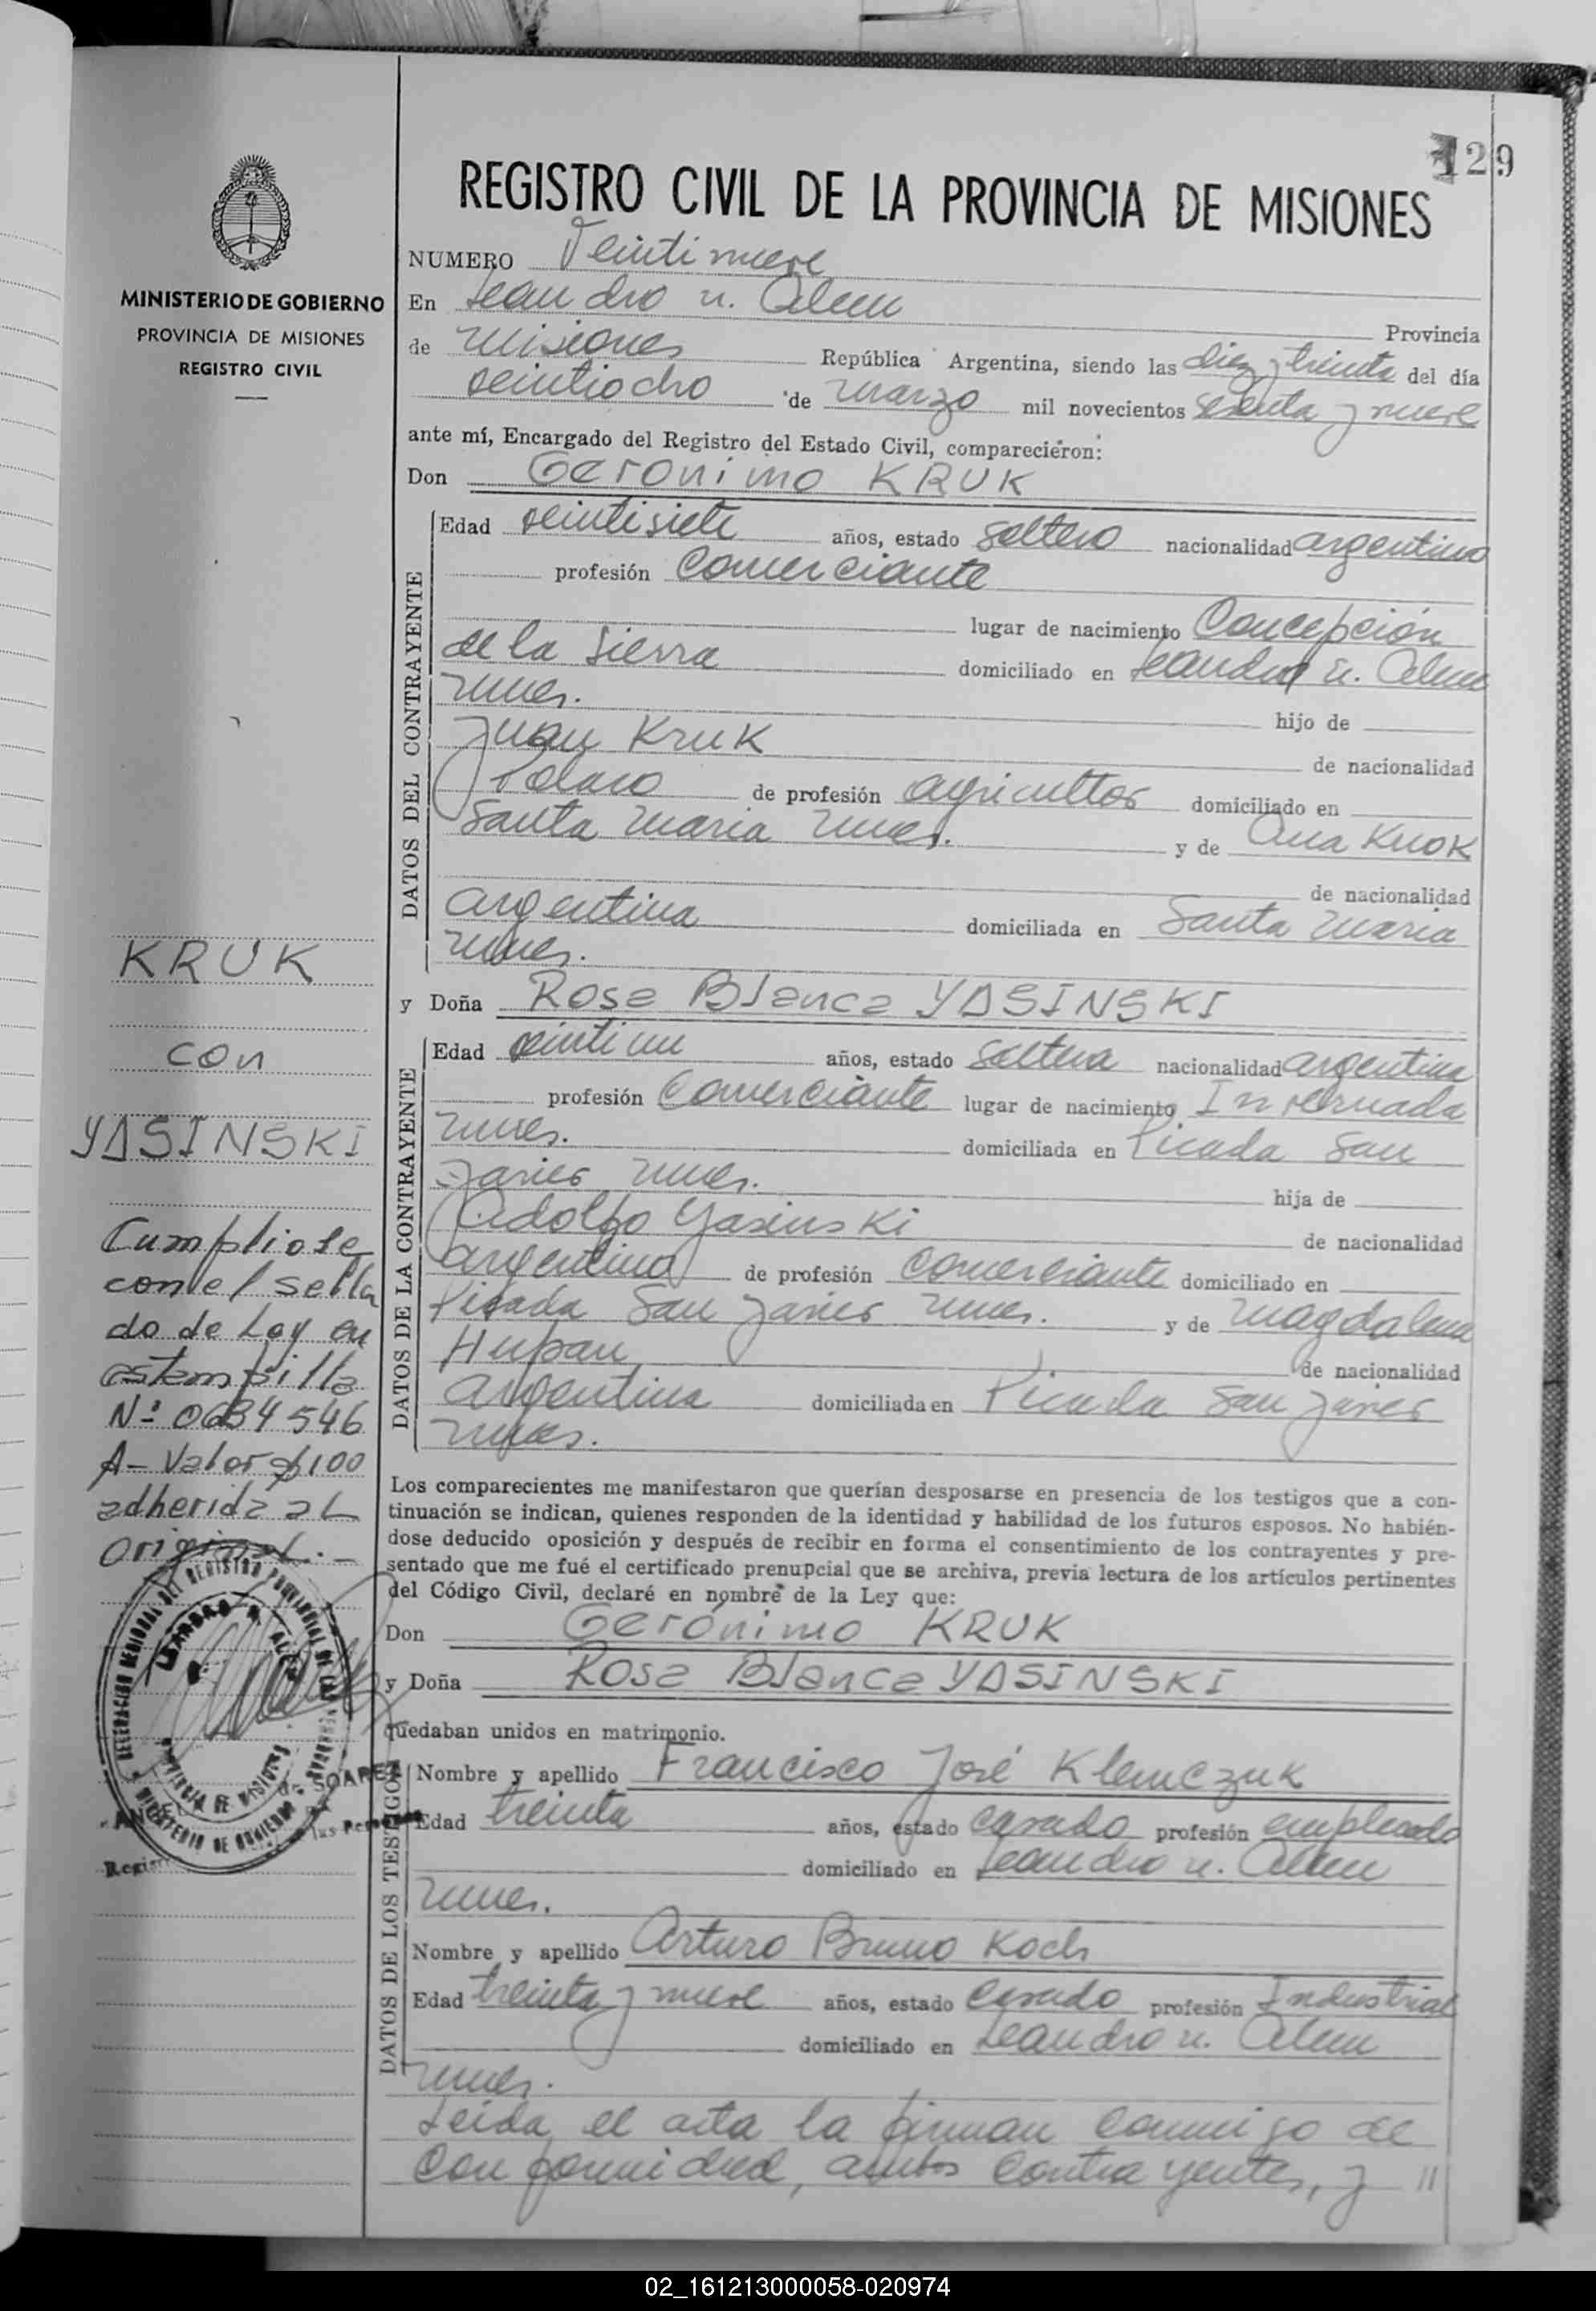 129
REGISTRO CIVIL DE LA PROVINCIA DE MISIONES
MINISTERIO DE GOBIERNO
PROVINCIA DE MISIONES
REGISTRO CIVIL
NUMERO Veintinueve
En Leandro N. Alem Provincia
de Misiones República Argentina, siendo las diez y treinta del día
veintiocho de marzo mil novecientos sesenta y nueve
ante mí, Encargado del Registro del Estado Civil, comparecieron:
Don Gerónimo KRUK
DATOS DEL CONTRAYENTE
Edad veintisiete años, estado soltero nacionalidad argentino
profesión Comerciante
lugar de nacimiento Concepción
de la Sierra domiciliado en Leandro N. Alem
Mnes. hijo de
Juan Kruk de nacionalidad
Polaco de profesión agricultor domiciliado en
Santa Maria Mnes. y de Ana
de nacionalidad
argentina domiciliada en Santa Maria
Mnes.
y Doña Rosa Blanca YASINSKI
DATOS DE LA CONTRAYENTE
Edad veintiun años, estado soltera nacionalidad argentina
profesión Comerciante lugar de nacimiento Invernada
Mnes. domiciliada en Picada San
Javier Mnes. hija de
Adolfo Yasinski de nacionalidad
argentino de profesión Comerciante domiciliado en
Picada San Javier Mnes. y de Magdalena
Hupan de nacionalidad
argentina domiciliada en Picada San Javier
Mnes.
Los comparecientes me manifestaron que querían desposarse en presencia de los testigos que a con-
tinuación se indican, quienes responden de la identidad y habilidad de los futuros esposos. No habién-
dose deducido oposición y después de recibir en forma el consentimiento de los contrayentes y pre-
sentado que me fué el certificado prenupcial que se archiva, previa lectura de los artículos pertinentes
del Código Civil, declaré en nombre de la Ley que:
Don Gerónimo KRUK
y Doña Rosa Blanca YASINSKI
quedaban unidos en matrimonio.
DATOS DE LOS TESTIGOS
Nombre y apellido Francisco José Klemczuk
Edad treinta años, estado casado profesión empleado
domiciliado en Leandro N. Alem
Mnes.
Nombre y apellido Arturo Bruno Koch
Edad treinta y nueve años, estado casado profesión Industrial
domiciliado en Leandro N. Alem
Mnes.
Leida el acta la firman conmigo de
conformidad, ambos contrayentes, y "
KRUK
con
YASINSKI
Cumpliose
con el sella
do de Ley en
estampilla
Nº 0634546
A- Valor $100
adherida al
Original.-
LEANDRO N. ALEM
PROVINCIA DE MISIONES
SOAREZ
02_161213000058-020974